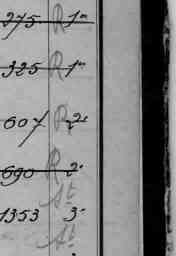 275 R 1"
325 R 1"
607 R 2"
690 R 2"
At
1353 3"
At